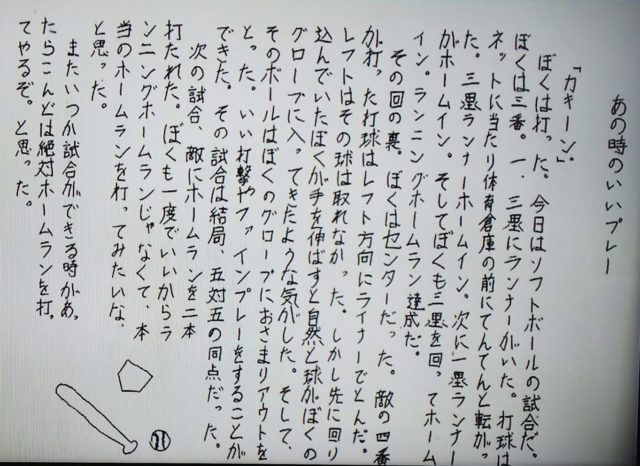 あの時のいいプレー
「カキーン。」
ぼくは打った。今日はソフトボールの試合だ。
ぼくは三番。一、三塁にランナーがいた。打球は
ネットに当たり体育倉庫の前にてんてんと転がっ
た。三塁ランナーホームイン。次に一塁ランナー
がホームイン。そしてぼくも三塁を回ってホーム
イン。ランニングホームラン達成だ。
その回の裏。ぼくはセンターだった。敵の四番
が打った打球はレフト方向にライナーでとんだ。
レフトはその球は取れなかった。しかし先に回り
込んでいたぼくが手を伸ばすと自然と球がぼくの
グローブに入ってきたような気がした。そして、
そのボールはぼくのグローブにおさまりアウトを
とった。いい打撃やファインプレーをすることが
できた。その試合は結局、五対五の同点だった。
次の試合、敵にホームランを二本
打たれた。ぼくも一度でいいからラ
ンニングホームランじゃなくて、本
当のホームランを打ってみたいな、
と思った。
またいつか試合ができる時があっ
たらこんどは絶対ホームランを打っ
てやるぞ。と思った。